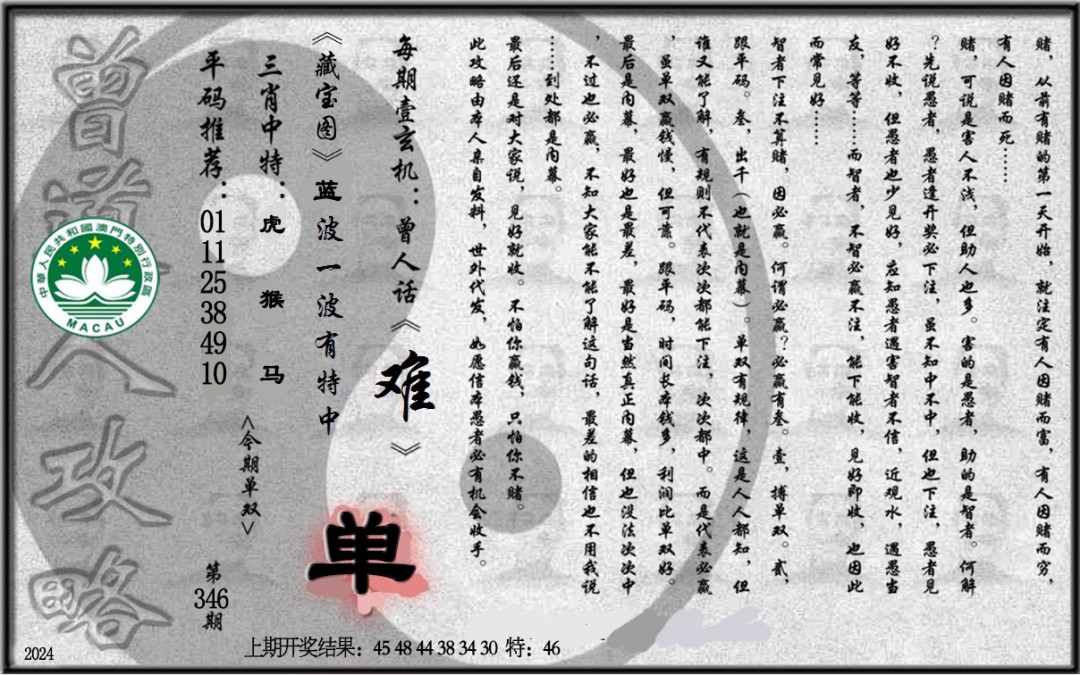 赌，从前有赌的第一天开始，就注定有人因赌而富，有人因赌而穷，
有人因赌而死……
赌，可说是害人不浅，但助人也多。害的是愚者，助的是智者。何解
？先说愚者，愚者逢开奖必下注，虽不知中不中，但也下注，愚者见
好不收，但愚者也少见好，应知愚者遇害智者不信，近观水，遇愚当
友，等等……而智者，不智必赢不注，能下能收，见好即收，也因此
而常见好……
智者下注不算赌，因必赢。何谓必赢？必赢有叁。壹，搏单双。贰，
跟平码。叁，出千（也就是内幕）。单双有规律，这是人人都知，但
谁又能了解，有规则不代表次次都能下注，次次都中。而是代表必赢
，虽单双赢钱慢，但可靠。跟平码，时间长本钱多，利润比单双好。
最后是内幕，最好也是最差，最好是当然真正内幕，但也没法次次中
，不过也必赢，不知大家能不能了解这句话，最差的相信也不用我说
……到处都是内幕。
最后还是对大家说，见好就收。不怕你赢钱，只怕你不赌。
此攻略由本人亲自发料，世外代发，如愿信本愚者必有机会收手。
每期壹玄机：曾人话《难》
《藏宝图》蓝波一波有特中
单
三肖中特：虎 猴 马
<今期单双>
平码推荐：01 11 25 38 49 10
第346期
曾道人攻略
中華人民共和國澳門特別行政區
MACAU
2024
上期开奖结果：45 48 44 38 34 30 特：46